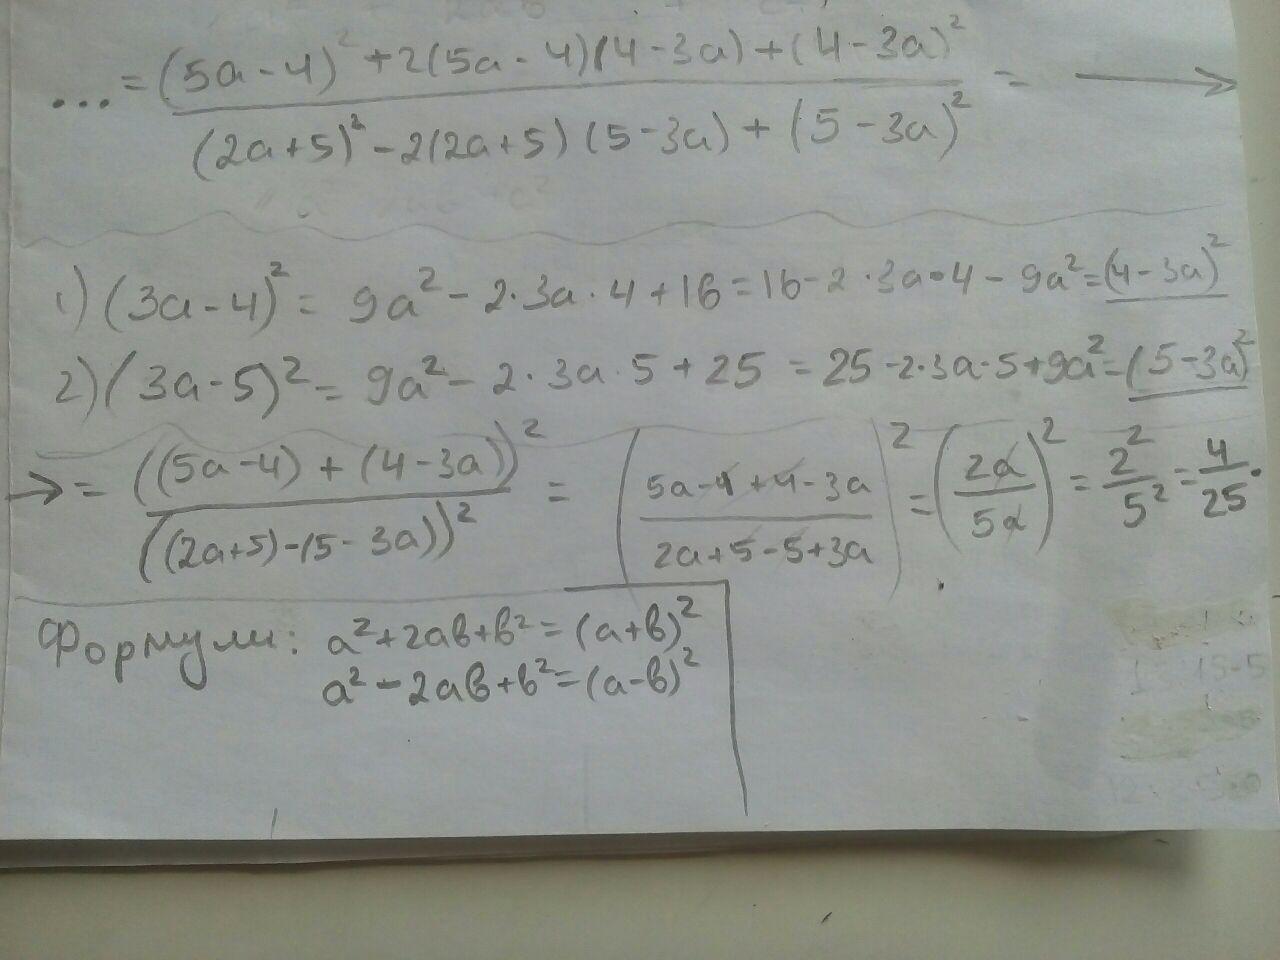 ... = (5a - 4)² + 2(5a - 4)(4 - 3a) + (4 - 3a)² / (2a + 5)² - 2(2a + 5)(5 - 3a) + (5 - 3a)² = →
1) (3a - 4)² = 9a² - 2·3a·4 + 16 = 16 - 2·3a·4 - 9a² = (4 - 3a)²
2) (3a - 5)² = 9a² - 2·3a·5 + 25 = 25 - 2·3a·5 + 9a² = (5 - 3a)²
→ = ((5a - 4) + (4 - 3a))² / ((2a + 5) - (5 - 3a))² = (5a - 4 + 4 - 3a / 2a + 5 - 5 + 3a)² = (2a / 5a)² = 2² / 5² = 4 / 25.
Формули: a² + 2ab + b² = (a + b)²
a² - 2ab + b² = (a - b)²